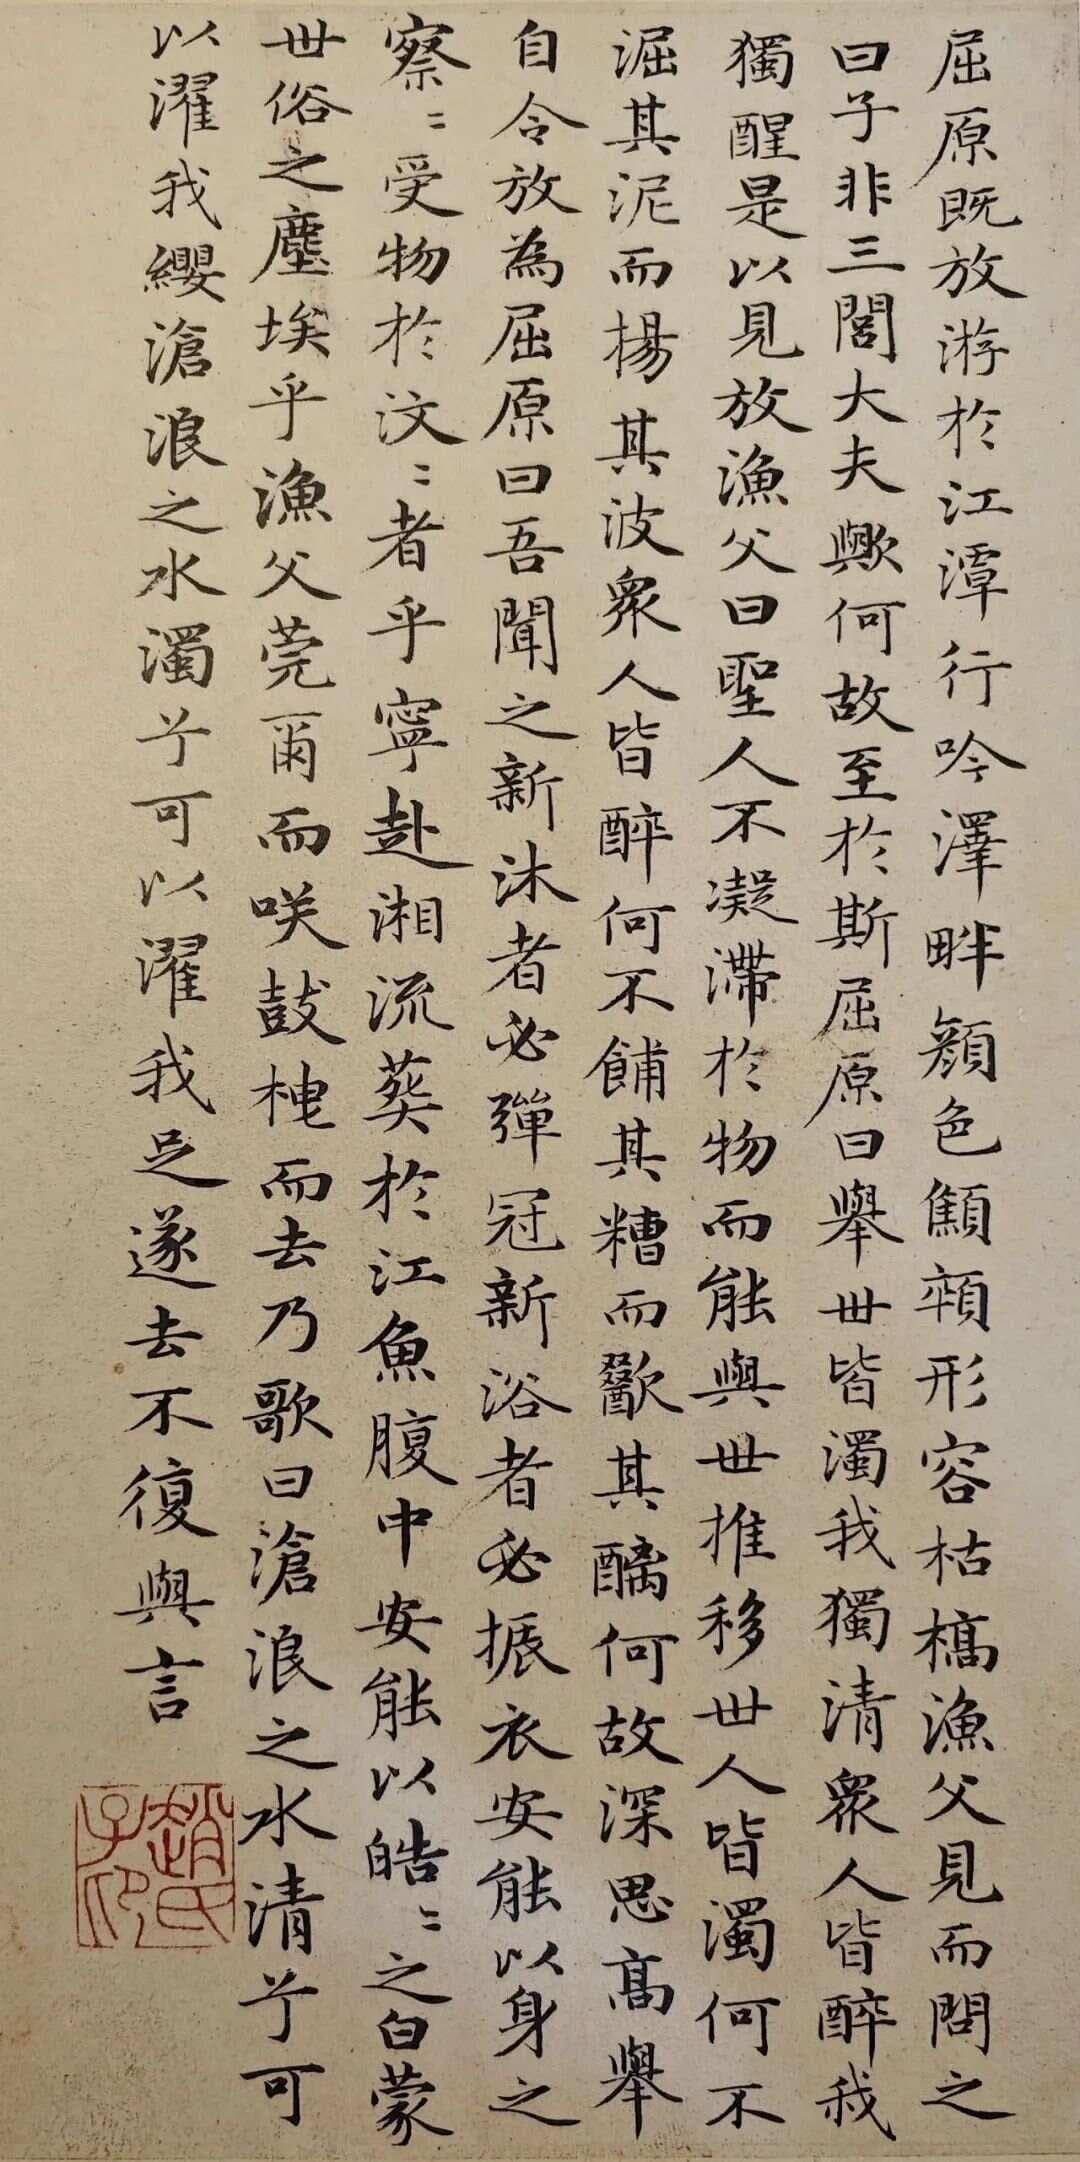 屈原既放游於江潭行吟澤畔顏色顦顇形容枯槁漁父見而問之
曰子非三閭大夫歟何故至於斯屈原曰舉世皆濁我獨清衆人皆醉我
獨醒是以見放漁父曰聖人不凝滯於物而能與世推移世人皆濁何不
淈其泥而揚其波衆人皆醉何不餔其糟而歠其醨何故深思高舉
自令放為屈原曰吾聞之新沐者必彈冠新浴者必振衣安能以身之
察〻受物於汶〻者乎寧赴湘流葬於江魚腹中安能以皓〻之白蒙
世俗之塵埃乎漁父莞爾而咲鼓枻而去乃歌曰滄浪之水清兮可
以濯我纓滄浪之水濁兮可以濯我足遂去不復與言
趙氏子印